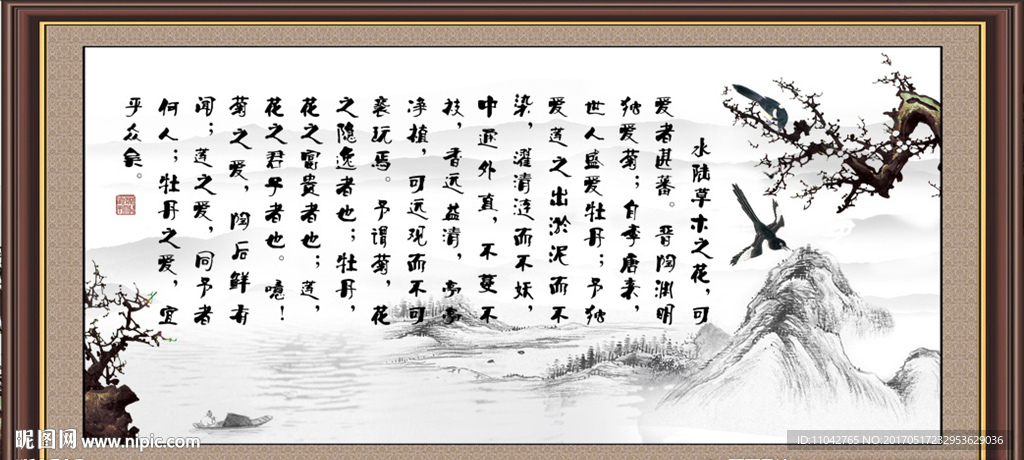 水陆草木之花，可
爱者甚蕃。晋陶渊明
独爱菊；自李唐来，
世人盛爱牡丹；予独
爱莲之出淤泥而不
染，濯清涟而不妖，
中通外直，不蔓不
枝，香远益清，亭亭
净植，可远观而不可
亵玩焉。予谓菊，花
之隐逸者也；牡丹，
花之富贵者也；莲，
花之君子者也。噫！
菊之爱，陶后鲜有
闻；莲之爱，同予者
何人；牡丹之爱，宜
乎众矣。
昵图网 www.nipic.com
ID:11042765 NO:20170517232953629036